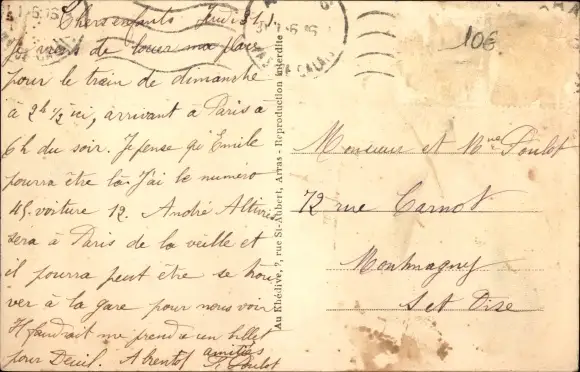 Chers enfants Jeudi 31.1
Je viens de louer ma place
pour le train de dimanche
à 2h 1/2 ici, arrivant à Paris à
6h du soir. Je pense qe Emile
pourra être là J'ai le numéro
45. voiture 12. André
sera à Paris de la veille et
il pourra peut être se trou
ver à la gare pour nous voir
Il faudrait me prendre un billet
pour Deuil. A bientôt amitiés
Poulot
Au Khédive, 7, rue St-Aubert, Arras - Reproduction interdite
10€
Monsieur et Mme Poulot
72 rue Carnot
Montmagny
S et Oise